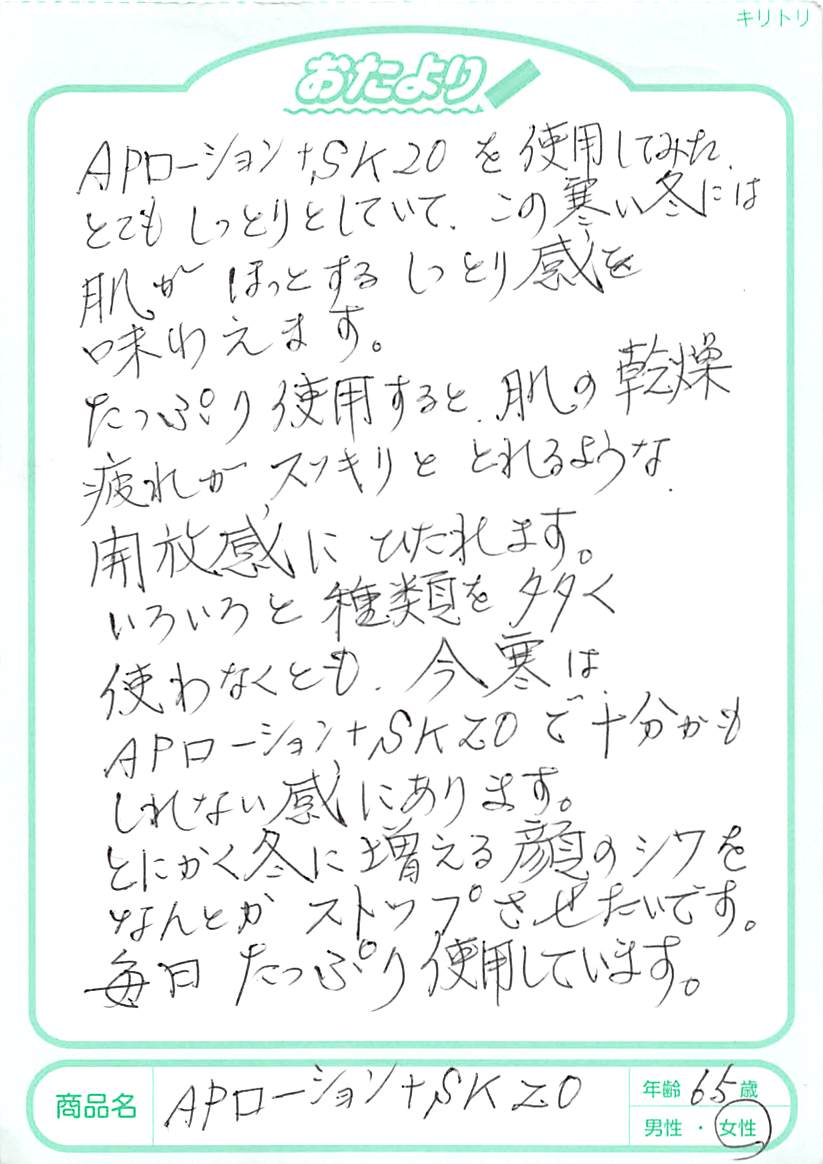 キリトリ
おたより
APローション+SK20を使用してみた、
とてもしっとりとしていて、この寒い冬には
肌がほっとするしっとり感を
味わえます。
たっぷり使用すると、肌の乾燥
疲れがスッキリととれるような、
開放感にひたれます。
いろいろと種類を多く
使わなくとも、今寒は、
APローション+SK20で十分かも
しれない感にあります。
とにかく冬に増える顔のシワを
なんとかストップさせたいです。
毎日たっぷり使用しています。
商品名 APローション+SK20
年齢 65歳
男性・女性